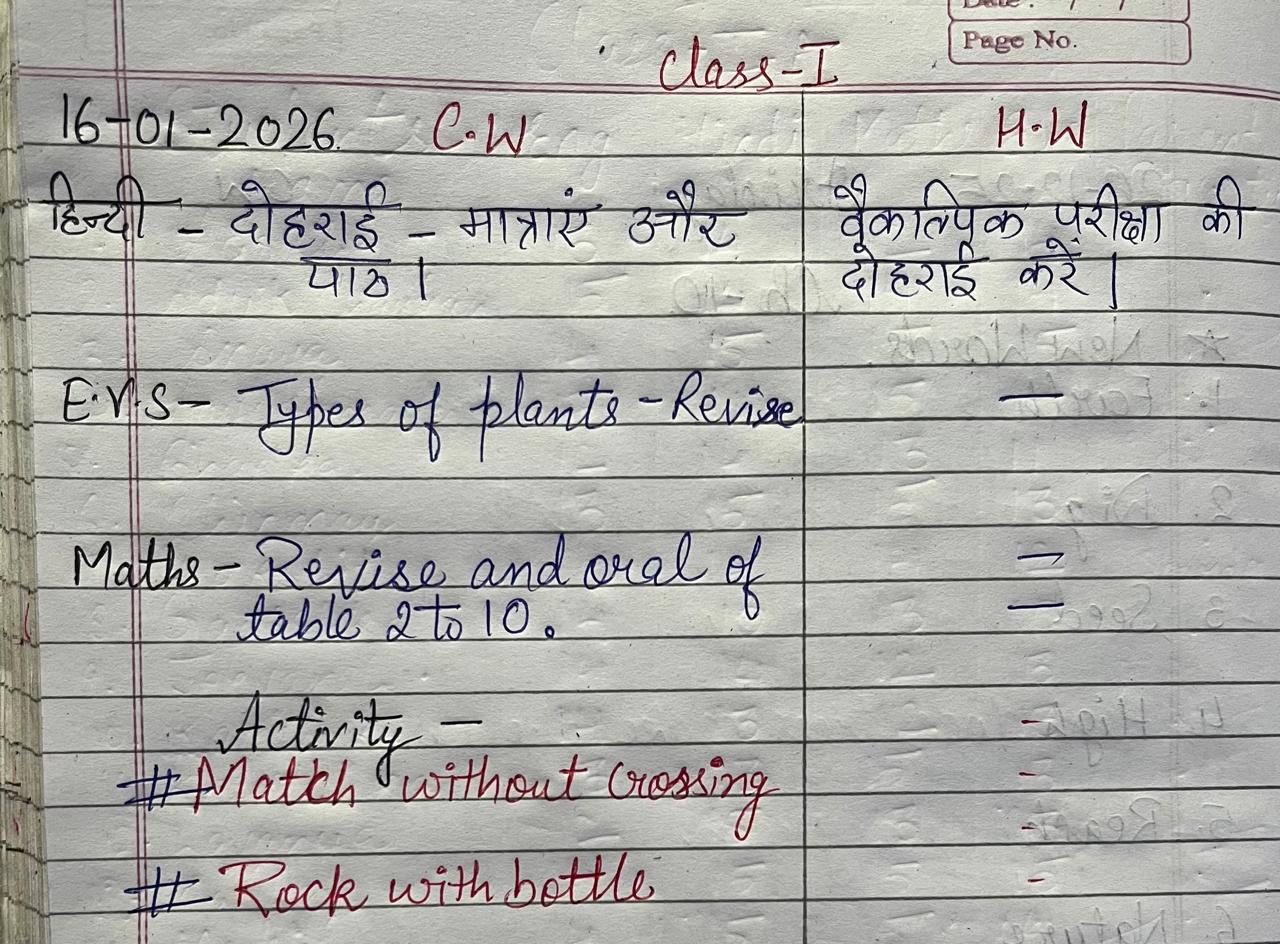 Date : / /
Page No.
Class-I
16-01-2026. C.W H.W
हिन्दी - दोहराई - मात्राएं और वैकल्पिक परीक्षा की
पाठ। दोहराई करें।
E.V.S- Types of plants-Revise —
Maths- Revise and oral of —
table 2 to 10. —
Activity — -
# Match without crossing -
-
# Rock with bottle -